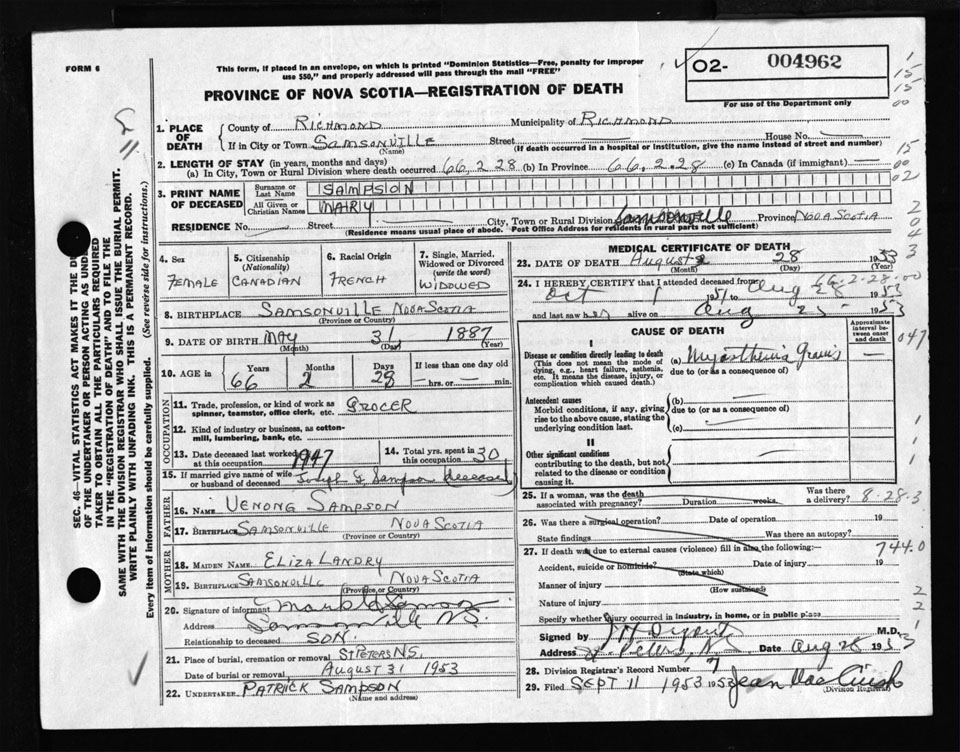 FORM 6
This form, if placed in an envelope, on which is printed "Dominion Statistics—Free, penalty for improper
use $50," and properly addressed will pass through the mail "FREE"
PROVINCE OF NOVA SCOTIA—REGISTRATION OF DEATH
O2- 004962
For use of the Department only
SEC. 46—VITAL STATISTICS ACT MAKES IT THE DU
OF THE UNDERTAKER OR PERSON ACTING AS UND
TAKER TO OBTAIN ALL THE PARTICULARS REQUIRED
IN THE "REGISTRATION OF DEATH" AND TO FILE THE
SAME WITH THE DIVISION REGISTRAR WHO SHALL ISSUE THE BURIAL PERMIT.
WRITE PLAINLY WITH UNFADING INK. THIS IS A PERMANENT RECORD.
Every item of information should be carefully supplied. (See reverse side for instructions.)
1. PLACE OF DEATH
County of RICHMOND Municipality of RICHMOND
If in City or Town SAMSONVILLE Street House No.
(Name) (If death occurred in a hospital or institution, give the name instead of street and number)
2. LENGTH OF STAY (in years, months and days)
(a) In City, Town or Rural Division where death occurred 66, 2 28 (b) In Province 66, 2, 28 (c) In Canada (if immigrant) —
3. PRINT NAME OF DECEASED
Surname or Last Name SAMPSON
All Given or Christian Names MARY
RESIDENCE No. Street City, Town or Rural Division Samsonville Province NOVA SCOTIA
(Residence means usual place of abode. Post Office Address for residents in rural parts not sufficient)
4. Sex FEMALE
5. Citizenship (Nationality) CANADIAN
6. Racial Origin FRENCH
7. Single, Married, Widowed or Divorced (write the word) WIDOWED
8. BIRTHPLACE SAMSONVILLE NOVA SCOTIA
(Province or Country)
9. DATE OF BIRTH MAY 31 1887
(Month) (Day) (Year)
10. AGE in Years 66 Months 2 Days 28 If less than one day —hrs. or —min.
OCCUPATION
11. Trade, profession, or kind of work as spinner, teamster, office clerk, etc. GROCER
12. Kind of industry or business, as cotton-mill, lumbering, bank, etc.
13. Date deceased last worked at this occupation 1947
14. Total yrs. spent in this occupation 30
15. If married give name of wife or husband of deceased Joseph Sampson (deceased)
FATHER
16. NAME VENONG SAMPSON
17. BIRTHPLACE SAMSONVILLE NOVA SCOTIA
(Province or Country)
MOTHER
18. MAIDEN NAME ELIZA LANDRY
19. BIRTHPLACE SAMSONVILLE NOVA SCOTIA
(Province or Country)
20. Signature of informant
Address Samsonville N.S.
Relationship to deceased SON.
21. Place of burial, cremation or removal ST PETERS N.S.
Date of burial or removal AUGUST 31 1953
22. UNDERTAKER PATRICK SAMPSON
(Name and address)
MEDICAL CERTIFICATE OF DEATH
23. DATE OF DEATH August 28 1953
(Month) (Day) (Year)
24. I HEREBY CERTIFY that I attended deceased from
Oct 1 1951 to Aug 28 1953
and last saw her alive on Aug 25 1953
CAUSE OF DEATH
Approximate interval between onset and death
I
Disease or condition directly leading to death
(This does not mean the mode of dying, e.g., heart failure, asthenia, etc. It means the disease, injury, or complication which caused death.)
(a) Myasthenia Gravis —
due to (or as a consequence of)
Antecedent causes
Morbid conditions, if any, giving rise to the above cause, stating the underlying condition last.
(b) —
due to (or as a consequence of)
(c)
II
Other significant conditions
contributing to the death, but not related to the disease or condition causing it.
25. If a woman, was the death associated with pregnancy? Duration weeks. Was there a delivery? 8-28-3
26. Was there a surgical operation? Date of operation 19
State findings Was there an autopsy?
27. If death was due to external causes (violence) fill in also the following: 744.0
Accident, suicide or homicide? Date of injury 19
(State which)
Manner of injury
(How sustained)
Nature of injury
Specify whether injury occurred in industry, in home, or in public place
Signed by M.D.
Address St Peters, N.S. Date Aug 28 1953
28. Division Registrar's Record Number 7
29. Filed SEPT 11 1953 Jean
(Division Registrar)